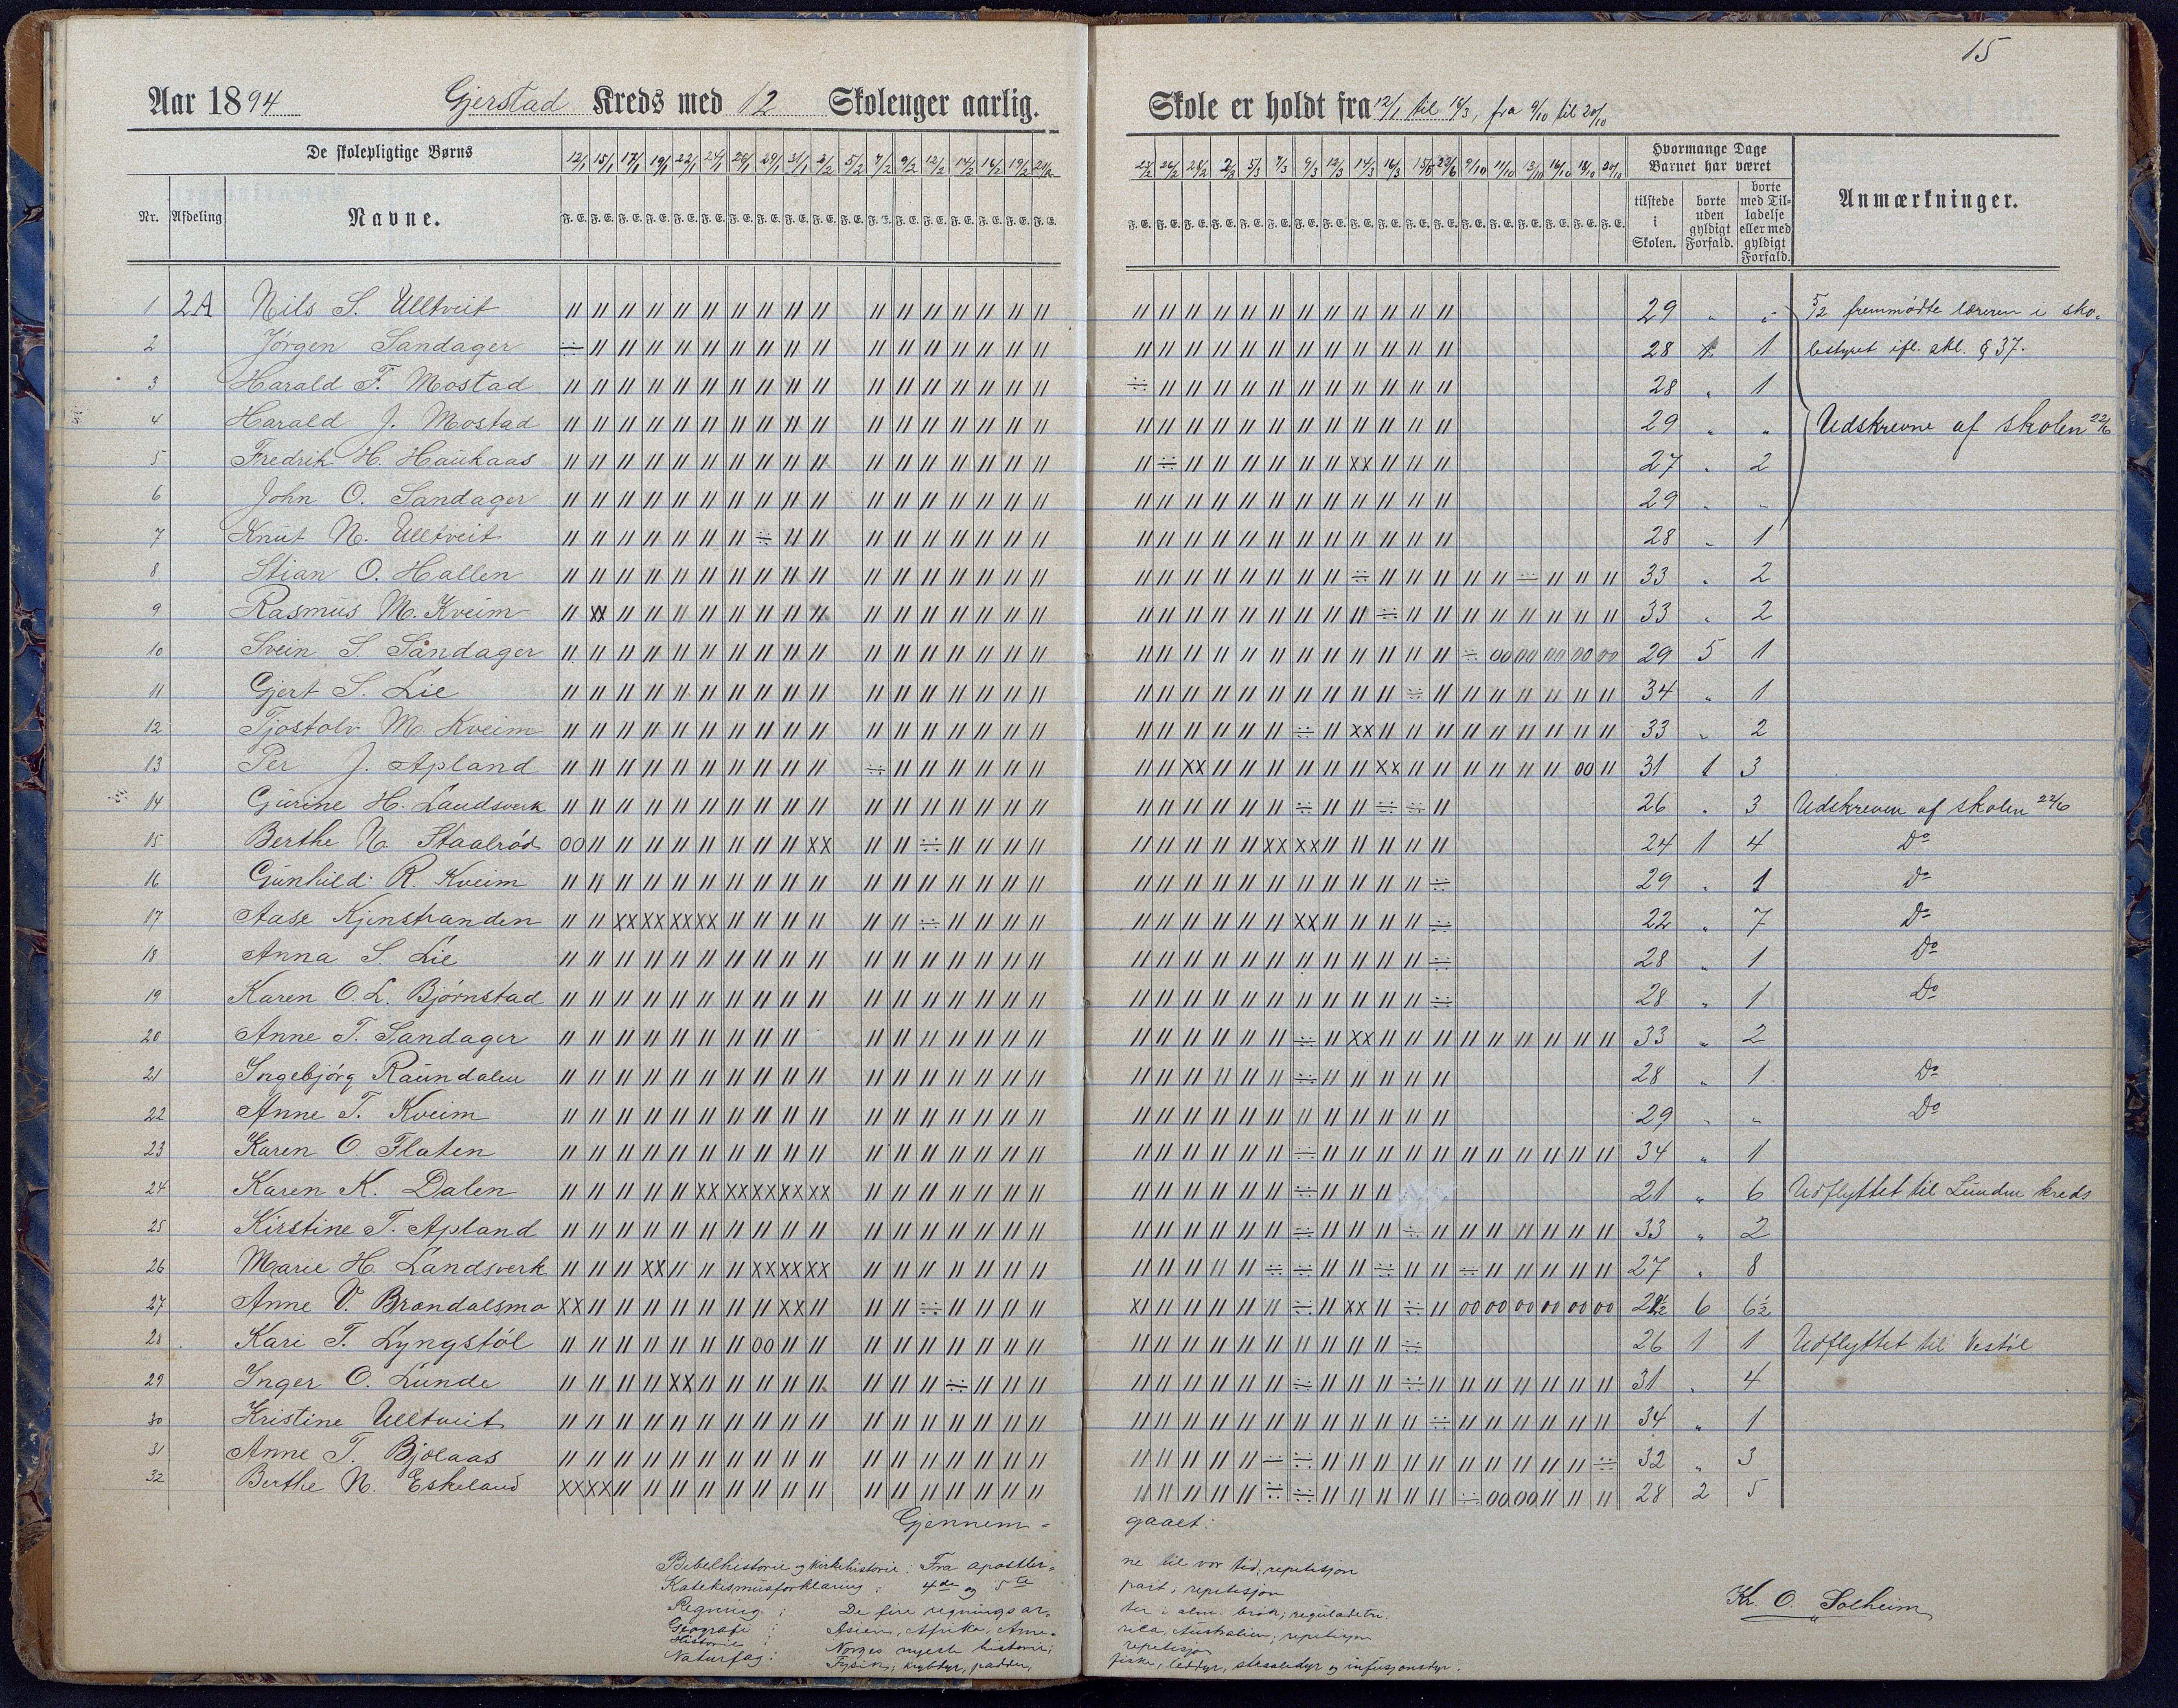 15
Aar 1894 Gjerstad Kreds med 12 Skoleuger aarlig.
Skole er holdt fra 12/1 til 16/3, fra 9/10 til 20/10
De skolepligtige Børns
Nr. Afdeling Navne.
12/1 15/1 17/1 19/1 22/1 24/1 26/1 29/1 31/1 2/2 5/2 7/2 9/2 12/2 14/2 16/2 19/2 21/2
9/3 12/3 14/3 16/3 9/10 11/10 13/10 16/10 18/10 20/10
Hvormange Dage Barnet har været
tilstede i Skolen.
borte uden gyldigt Forfald.
borte med Tilladelse eller med gyldigt Forfald.
Anmærkninger.
1 2A Nils S. Ulltveit 29 " " 5/2 fremmødte læreren i sko-
2 Jörgen Sandager 28 1 lestyret ifl. skl. § 37.
3 Harald F. Mostad 28 " 1
4 Harald J. Mostad 29 " " Udskrevne af skolen 22/6
5 Fredrik H. Haukaas 27 " 2
6 John O. Sandager 29 " "
7 Knut N. Ulltveit 28 " 1
8 Stian O. Hallen 33 " 2
9 Rasmus M. Kveim 33 " 2
10 Svein S. Sandager 29 5 1
11 Gjert S. Lie 34 " 1
12 Tjostolv M Kveim 33 " 2
13 Per J. Apland 31 1 3
14 Gurine H. Landsverk 26 " 3 Udskreven af skolen 22/6
15 Berthe N. Staalröd 24 1 4 Do
16 Gunhild R. Kveim 29 " 1 Do
17 Aase Kjenstranden 22 " 7 Do
18 Anna S. Lie 28 " 1 Do
19 Karen O. L. Björnstad 28 " 1 Do
20 Anne T. Sandager 33 " 2
21 Ingebjörg Raundalen 28 " 1 Do
22 Anne T. Kveim 29 " " Do
23 Karen O. Flaten 34 " 1
24 Karen K. Dalen 21 " 6 Udflyttet til Lunden kreds
25 Kirstine T. Apland 33 " 2
26 Marie H. Landsverk 27 " 8
27 Anne V. Brændalsmo 6 6½
28 Kari T. Lyngstöl 26 1 1 Udflyttet til Vestöl
29 Inger O. Lunde 31 " 4
30 Kristine Ulltveit 34 " 1
31 Anne T. Bjolaas 32 " 3
32 Berthe N. Eskeland 28 2 5
Gjennem- gaaet:
Bibelhistorie og kirkehistorie: Fra apostler- ne til vor tid; repetisjon
Katekismusforklaring: 4de og 5te part; repetisjon
Regning: De fire regningsar- ter i alm. brök; reguladetri.
Geografi: Asien, Afrika, Ame- rika, Australien; repetisjon
Historie: Norges nyeste historie; repetisjon
Naturfag: Fysik; krybdyr, padder, fiske, leddyr, straaledyr og infusjonsdyr.
Kr. O. Solheim